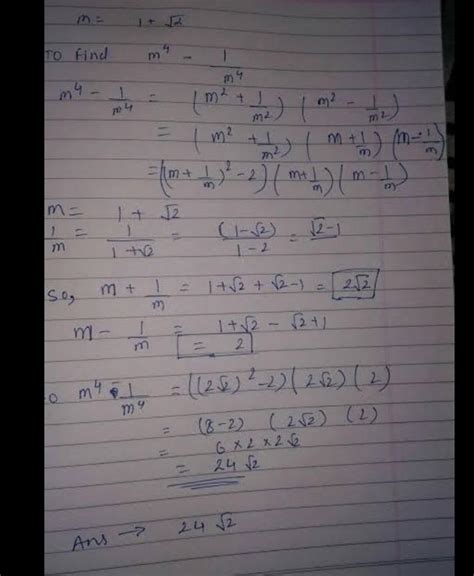 m = 1 + √2
To find m⁴ - 1/m⁴
m⁴ - 1/m⁴ = (m² + 1/m²) (m² - 1/m²)
= (m² + 1/m²) (m + 1/m) (m - 1/m)
= ((m + 1/m)² - 2) (m + 1/m) (m - 1/m)
m = 1 + √2
1/m = 1/(1+√2) = (1-√2)/(1-2) = √2-1
so, m + 1/m = 1+√2 + √2-1 = 2√2
m - 1/m = 1+√2 - √2+1
= 2
o m⁴ - 1/m⁴ = ((2√2)² - 2) (2√2) (2)
= (8-2) (2√2) (2)
= 6 × 2 × 2√2
= 24√2
Ans → 24√2